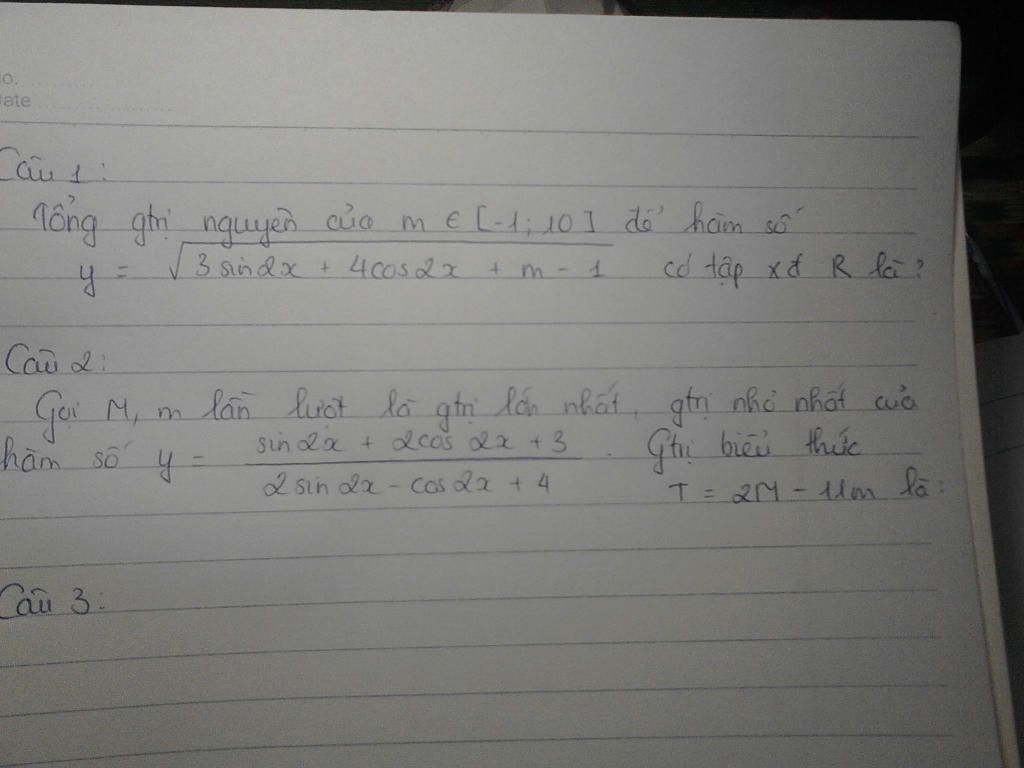 No.
Date
Câu 1:
Tổng gtrị nguyên của m ∈ [-1; 10] để hàm số
y = √(3 sin2x + 4cos2x + m - 1) có tập xđ R là?
Câu 2:
Gọi M, m lần lượt là gtrị lớn nhất, gtrị nhỏ nhất của
hàm số y = (sin2x + 2cos 2x + 3)/(2 sin 2x - cos2x + 4). Gtrị biểu thức
T = 2M - 11m là:
Câu 3: